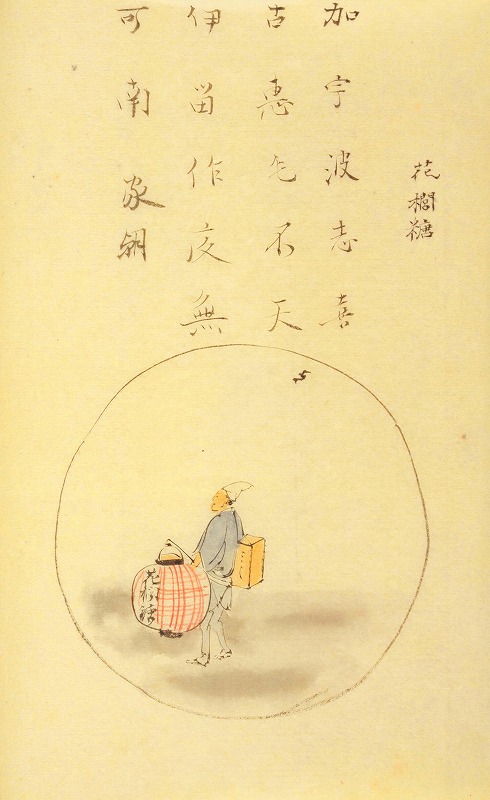 花櫚糖
加宇波志喜
古惠乞不天
伊留作夜無
可南
花櫚糖